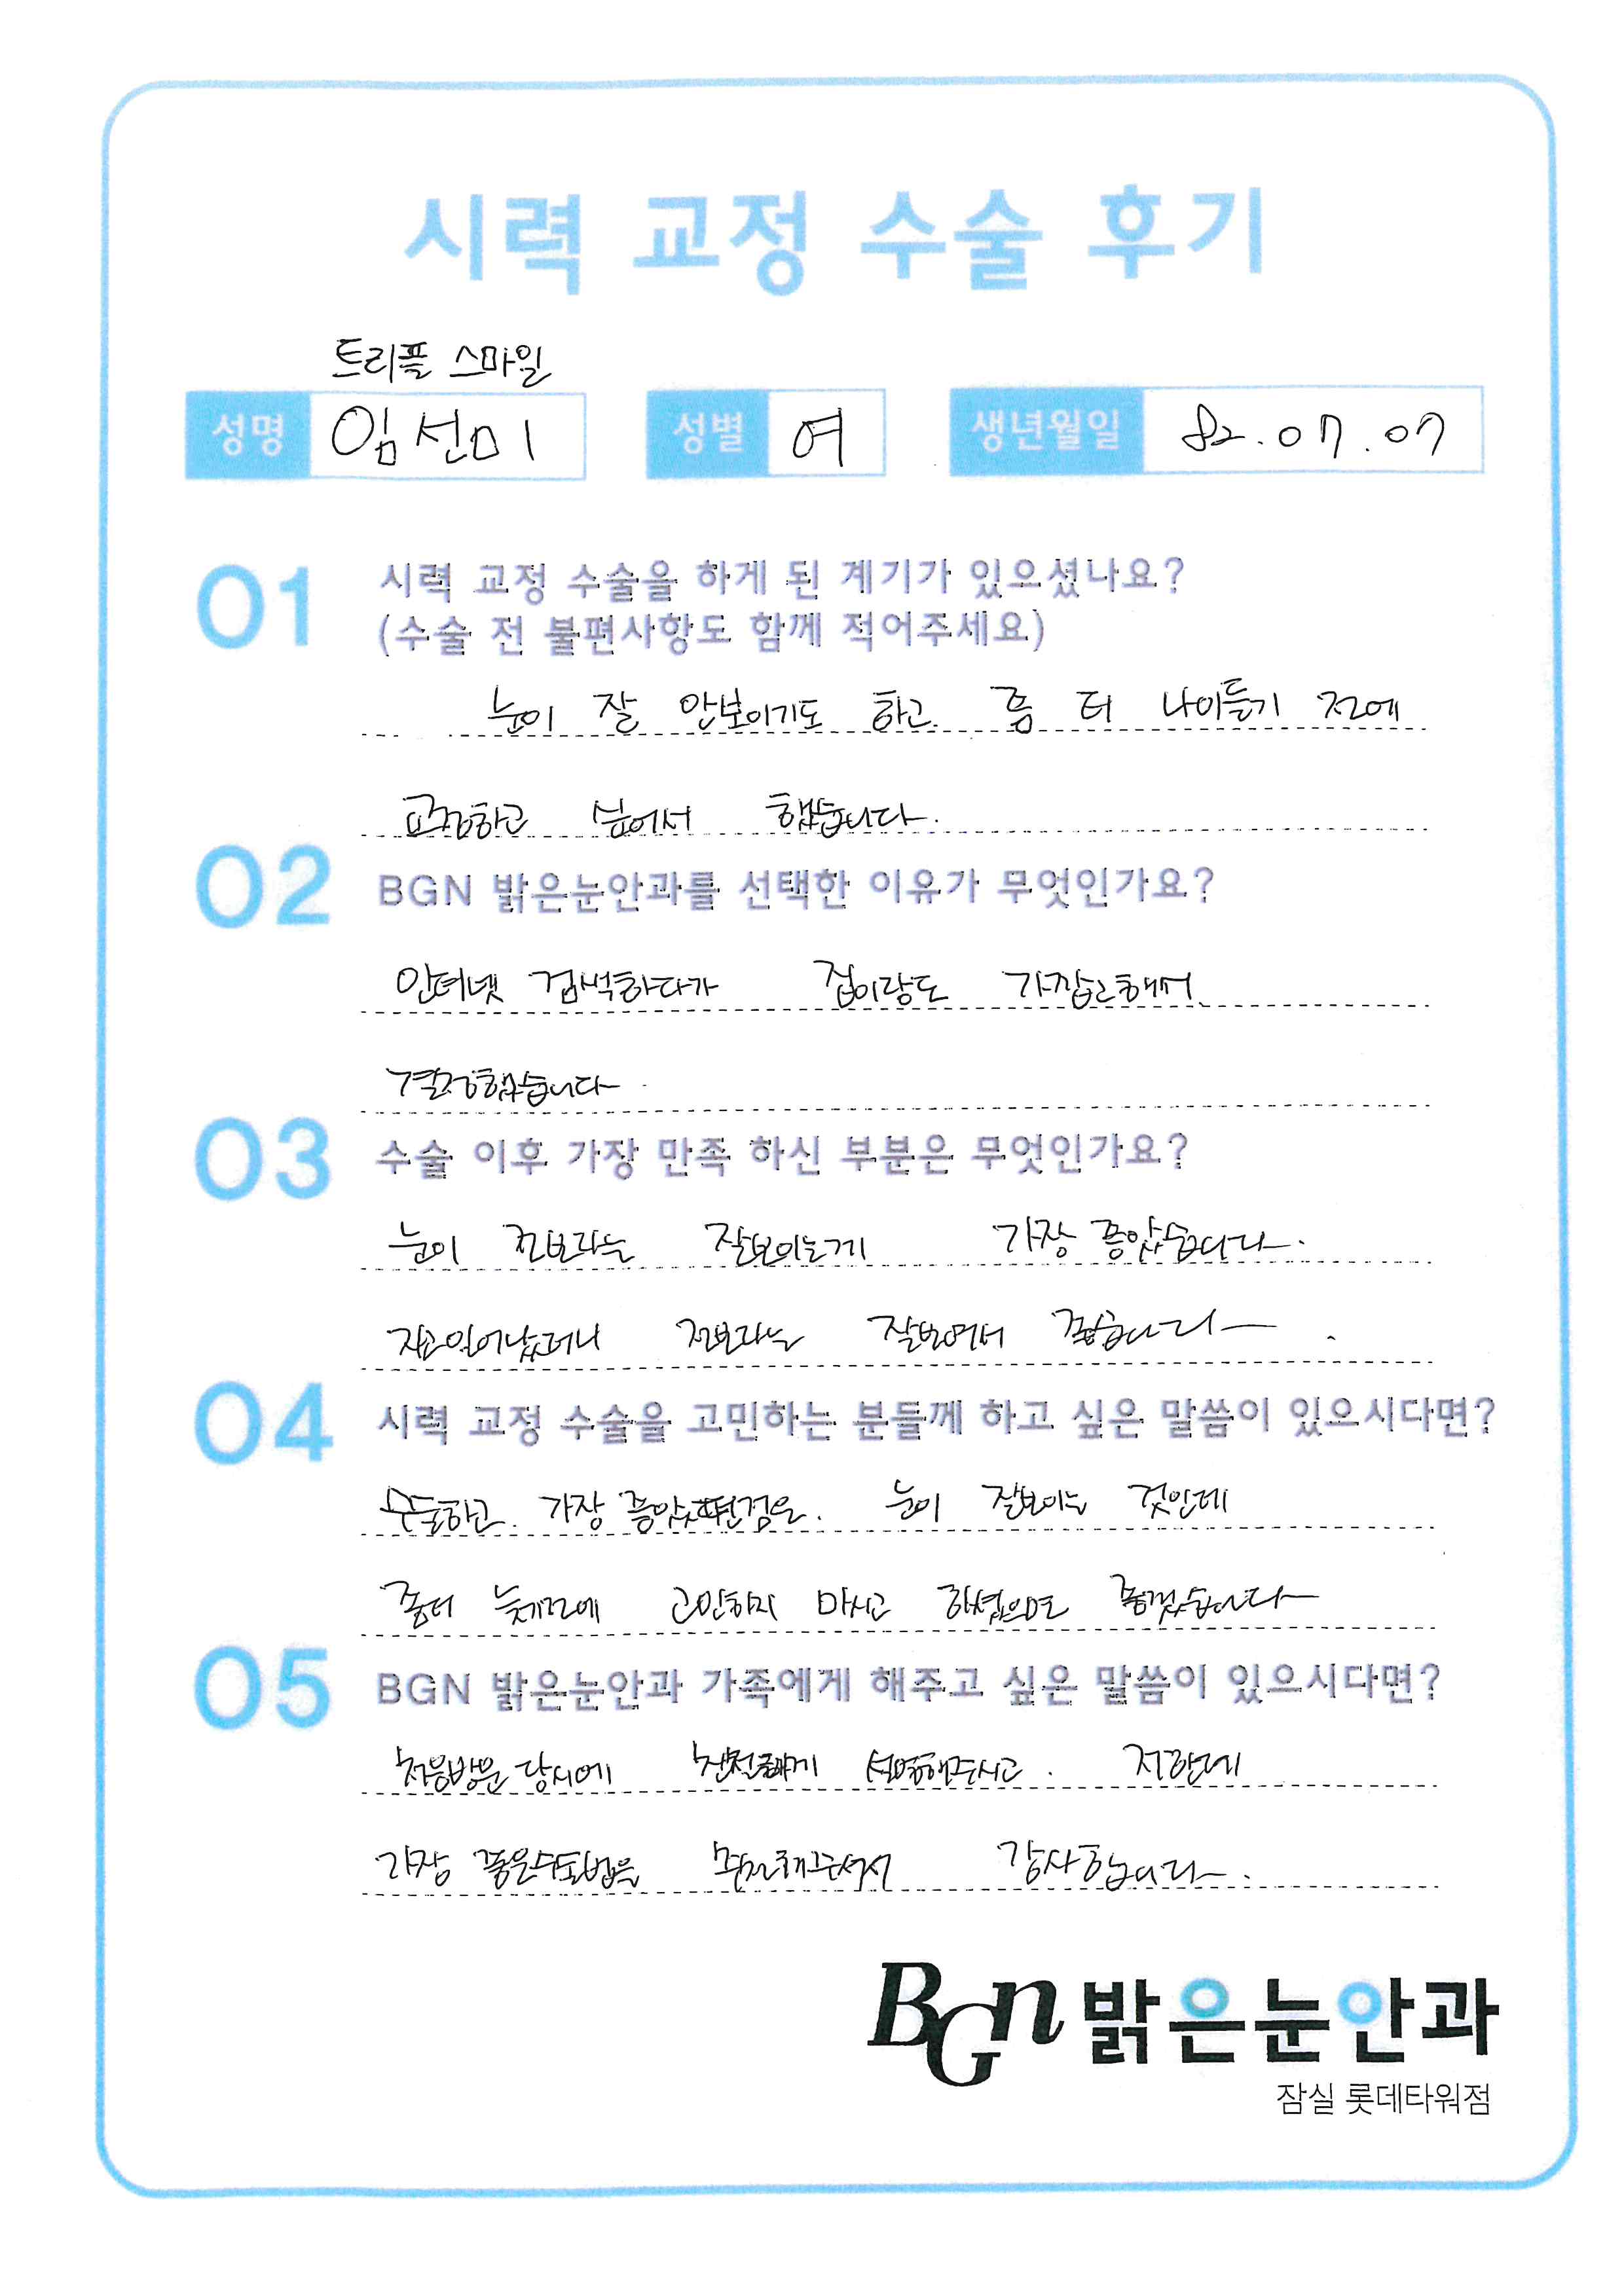 시력 교정 수술 후기
트리플 스마일
성명 임선미 성별 여 생년월일 82.07.07
01 시력 교정 수술을 하게 된 계기가 있으셨나요?
(수술 전 불편사항도 함께 적어주세요)
눈이 잘 안보이기도 하고. 좀 더 나이들기 전에
교정하고 싶어서 했습니다.
02 BGN 밝은눈안과를 선택한 이유가 무엇인가요?
인터넷 검색하다가 집이랑도 가깝고해서
결정했습니다.
03 수술 이후 가장 만족 하신 부분은 무엇인가요?
눈이 전보다는 잘보이는게 가장 좋았습니다.
자고일어났더니 전보다는 잘보여서 좋습니다.
04 시력 교정 수술을 고민하는 분들께 하고 싶은 말씀이 있으시다면?
수술하고. 가장 눈이 잘보이는 것인데
좀더 늦기전에 고민하지 마시고 하셨으면 좋겠습니다
05 BGN 밝은눈안과 가족에게 해주고 싶은 말씀이 있으시다면?
처음방문 당시에 친절하게 설명해주시고. 저한테
가장 좋은수술법을 감사합니다.
BGN 밝은눈안과
잠실 롯데타워점